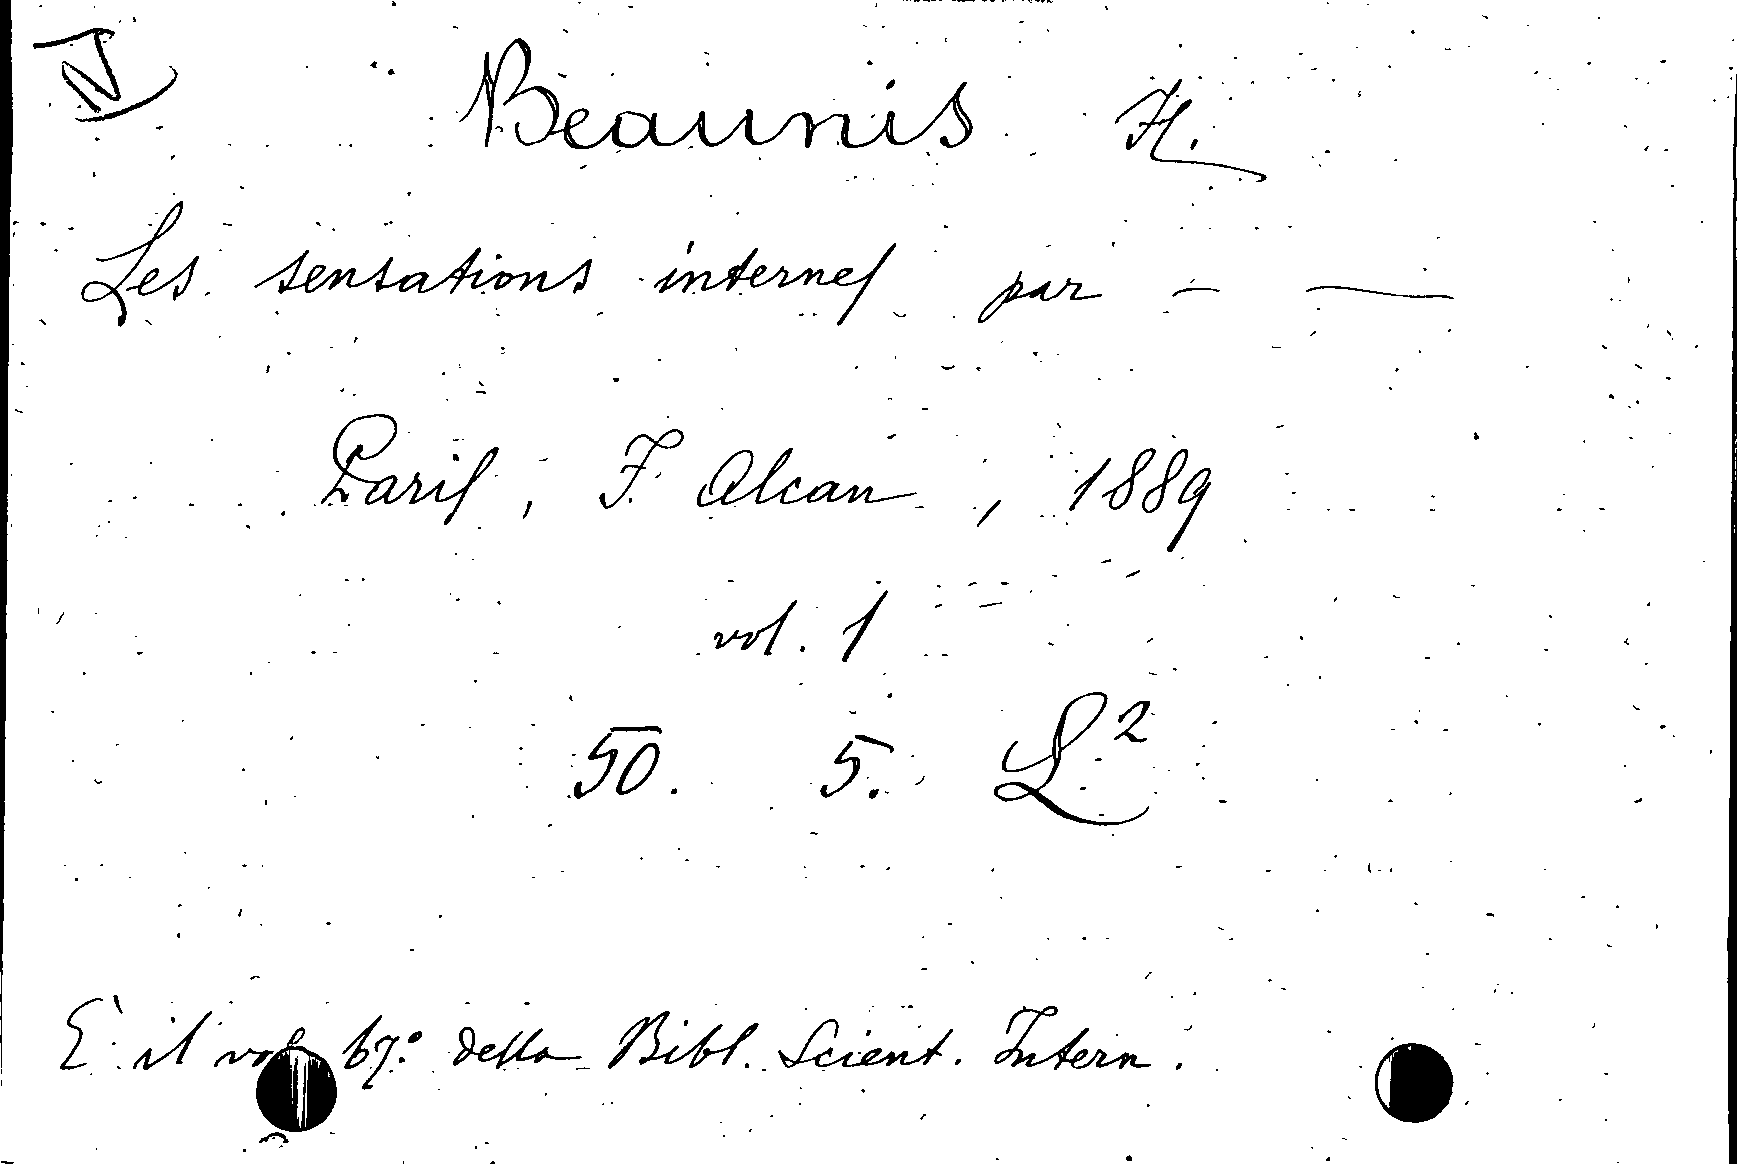 IV
Beaunis H.
Les sensations internes par — —
Paris, F. Alcan, 1889
vol. 1
50. 5. L²
E' il vol. 67.° della Bibl. Scient. Intern.